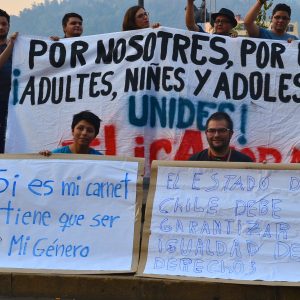 POR NOSOTRES, POR
¡ADULTES, NIÑES Y ADOLES
UNIDES!
Si es mi carnet
tiene que ser
Mi Género
EL ESTADO DE
CHILE DEBE
GARANTIZAR
IGUALDAD DE
DERECHOS